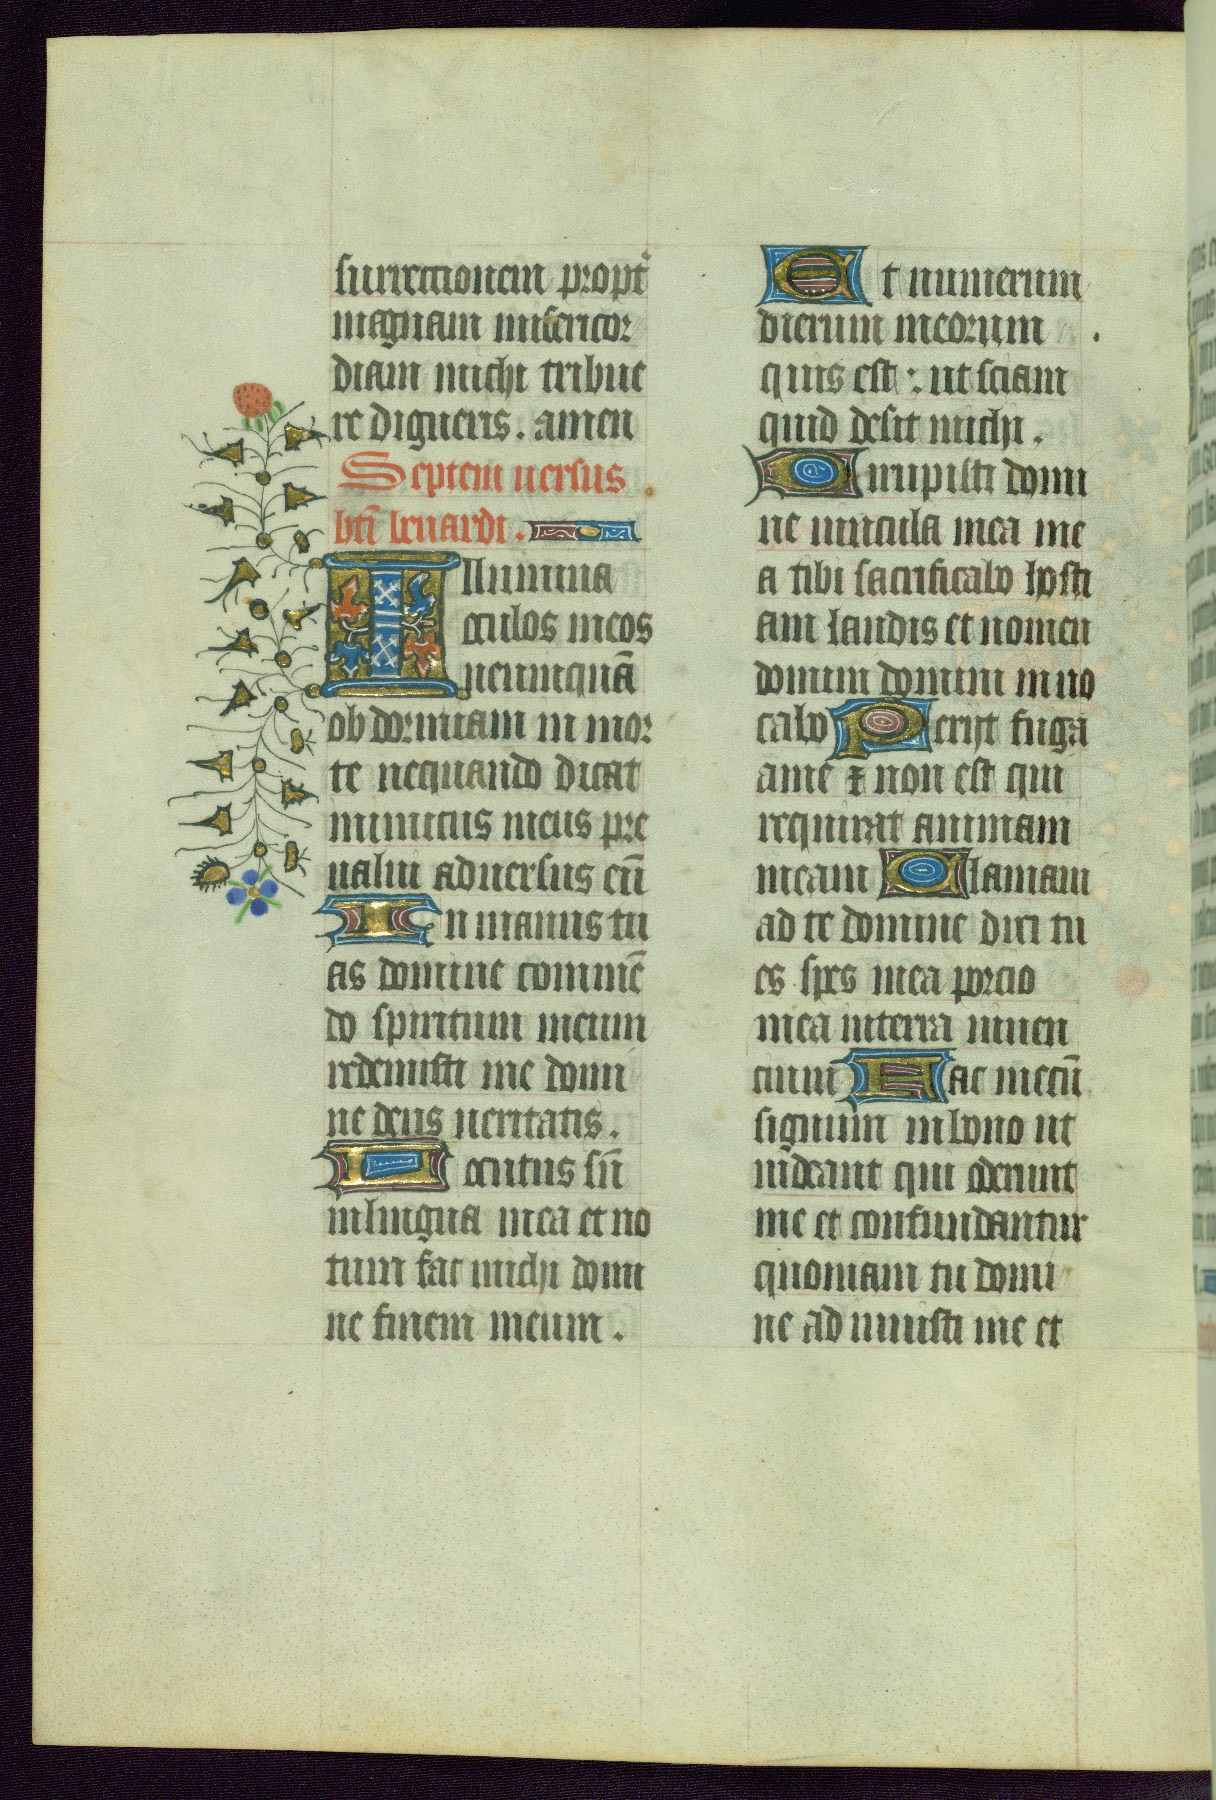 surrectionem propt
magnam misericor
diam michi tribue
re digneris. amen
Septem uersus
bti bernardi.
Illumina
oculos meos
neumquā
ob dormiam in mor
te nequando dicat
inimicus meus pre
ualui aduersus eū
In manus tu
as domine commē
do spiritum meum
redemisti me domi
ne deus ueritatis.
Locutus sū
inlingua mea et no
tum fac michi domi
ne finem meum.
Et numerum
dierum meorum
quis est : ut sciam
quid desit michi.
Dirupisti domi
ne uincula mea me
a tibi sacrificabo hosti
am laudis et nomen
domini domini inuo
cabo Perijt fuga
ame et non est qui
requirat animam
meam Clamaui
ad te domine dixi tu
es spes mea porcio
mea interra uiuen
cium Fac mecū
signum inbono ut
uideant qui oderunt
me et confundantur
quoniam tu domi
ne ad iuuisti me et